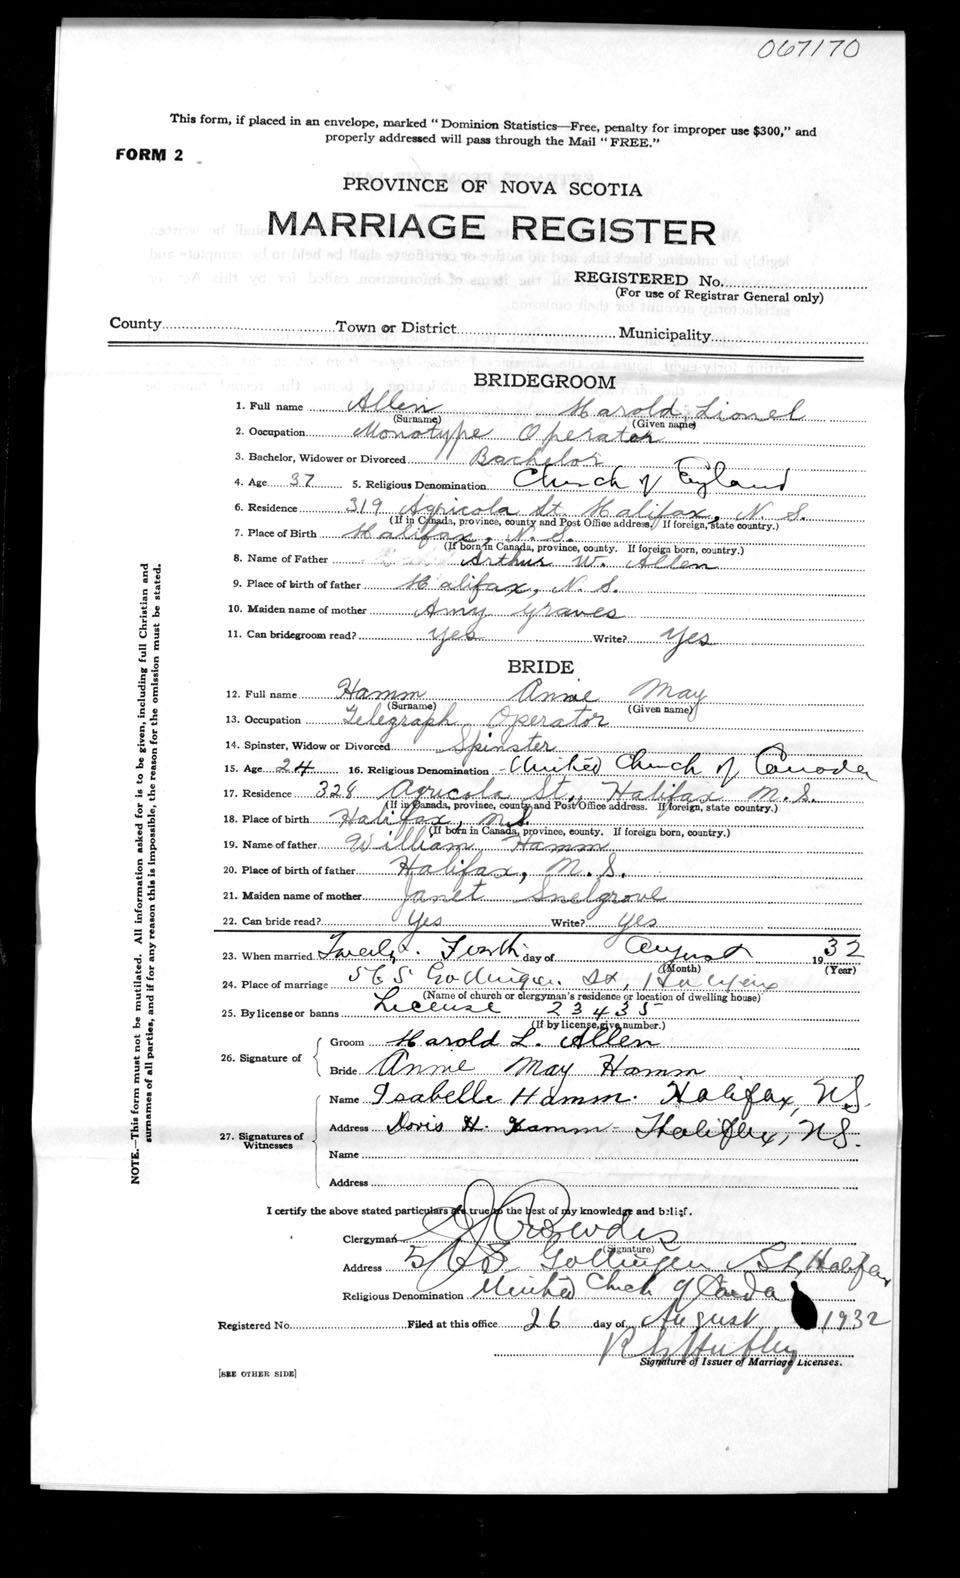 067170
This form, if placed in an envelope, marked "Dominion Statistics—Free, penalty for improper use $300," and
properly addressed will pass through the Mail "FREE."
FORM 2
PROVINCE OF NOVA SCOTIA
MARRIAGE REGISTER
REGISTERED No.
(For use of Registrar General only)
County Town or District Municipality
BRIDEGROOM
1. Full name Allen Harold Lionel
(Surname) (Given name)
2. Occupation Monotype Operator
3. Bachelor, Widower or Divorced Bachelor
4. Age 37 5. Religious Denomination Church of England
6. Residence 319 Agricola St. Halifax, N. S.
(If in Canada, province, county and Post Office address. If foreign, state country.)
7. Place of Birth Halifax, N. S.
(If born in Canada, province, county. If foreign born, country.)
8. Name of Father Arthur W. Allen
9. Place of birth of father Halifax, N. S.
10. Maiden name of mother Amy Graves
11. Can bridegroom read? Yes Write? Yes
BRIDE
12. Full name Hamm Annie May
(Surname) (Given name)
13. Occupation Telegraph Operator
14. Spinster, Widow or Divorced Spinster
15. Age 24 16. Religious Denomination United Church of Canada
17. Residence 328 Agricola St., Halifax N.S.
(If in Canada, province, county and Post Office address. If foreign, state country.)
18. Place of birth Halifax, N.S.
(If born in Canada, province, county. If foreign born, country.)
19. Name of father William Hamm
20. Place of birth of father Halifax, N.S.
21. Maiden name of mother Janet Snelgrove
22. Can bride read? Yes Write? Yes
23. When married Twenty Fourth day of August 1932
(Month) (Year)
24. Place of marriage Gottingen St, Halifax
(Name of church or clergyman's residence or location of dwelling house)
25. By license or banns License 23435
(If by license, give number.)
26. Signature of
Groom Harold L. Allen
Bride Annie May Hamm
27. Signatures of Witnesses
Name Isabelle Hamm. Halifax, N.S.
Address Doris H. Hamm - Halifax, N.S.
Name
Address
I certify the above stated particulars are true to the best of my knowledge and belief.
Clergyman
(Signature)
Address Gottingen St, Halifax
Religious Denomination United Church of Canada
Registered No. Filed at this office 26 day of August 1932
Signature of Issuer of Marriage Licenses.
[SEE OTHER SIDE]
NOTE.—This form must not be mutilated. All information asked for is to be given, including full Christian and
surnames of all parties, and if for any reason this is impossible, the reason for the omission must be stated.